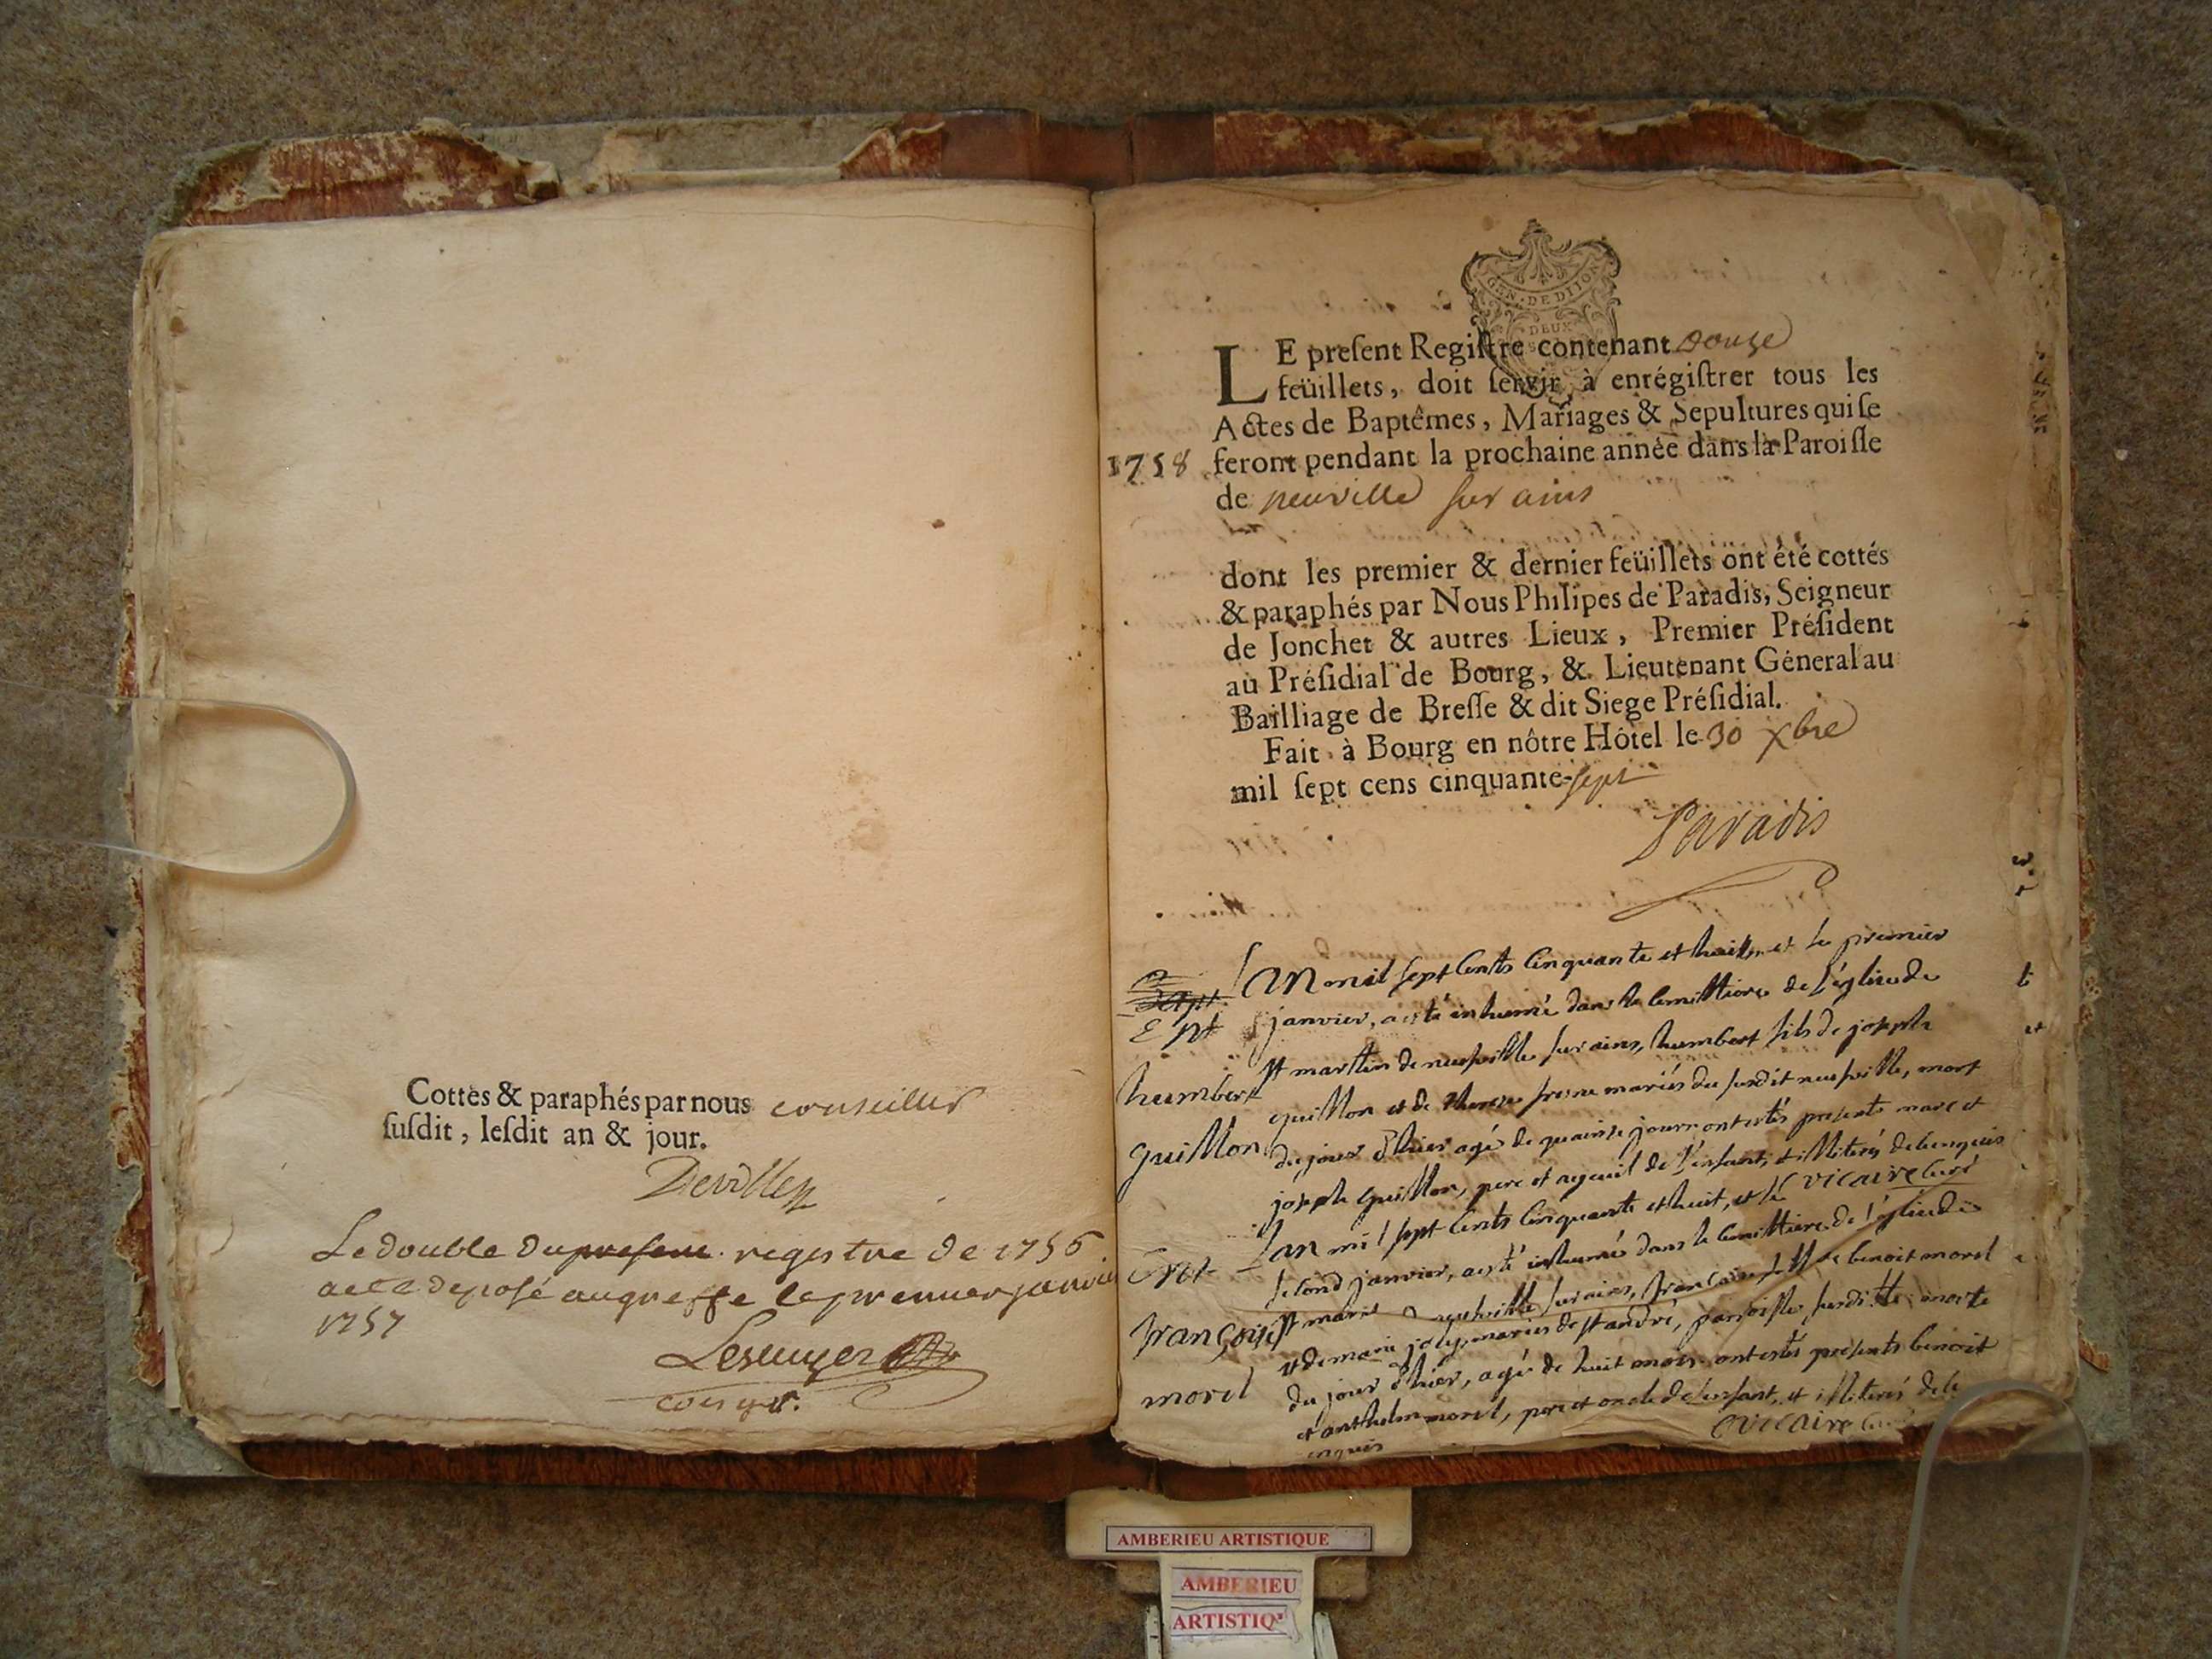 Cottés & paraphés par nous conseiller
susdit, lesdit an & jour.
Devilleze
Le double du present registre de 1756
a ete deposé au greffe le premier janvier
1757
Lescuyer
GEN · DE DIJON
DEUX
LE present Registre contenant Douze
feüillets, doit servir à enrégistrer tous les
Actes de Baptêmes, Mariages & Sepultures qui se
1758 feront pendant la prochaine année dans la Paroisse
de neuville sur ains
dont les premier & dernier feüillets ont été cottés
& paraphés par Nous Philipes de Paradis, Seigneur
de Jonchet & autres Lieux, Premier Présidenc
au Présidial de Bourg, & Lieutenant Géneral au
Bailliage de Bresse & dit Siege Présidial.
Fait à Bourg en nôtre Hôtel le 30 xbre
mil sept cens cinquante-sept
Paradis
Lan mil sept Cents Cinquante et huit, et le premier
Ent janvier, a esté inhumé dans le Cemittiere de l'église de
humbert st martin de neufville sur ains, humbert fils de joseph
guillon et de fresne mariés du susdit neufville, mort
guillon du jour d'hier agé de quainse jours ont estés presents marc et
joseph guillon, pere et ayeuil de l'enfant, et illiterés de ce enquis
vicaire Curé
Ent Lan mil sept Cents Cinquante et huit, et le
second janvier, a esté inhumé dans le Cemittiere de l'église de
françoise st martin neufville sur ains, françoise fille de benoit morel
et de marie joly mariés de st andré, paroisse susditte, morte
morel du jour d'hier, agé de huit mois ont estés presents benoit
et anthelm morel, pere et oncle de l'enfant, et illiterés de ce
enquis
vicaire
AMBERIEU ARTISTIQUE
AMBERIEU
ARTISTIQ